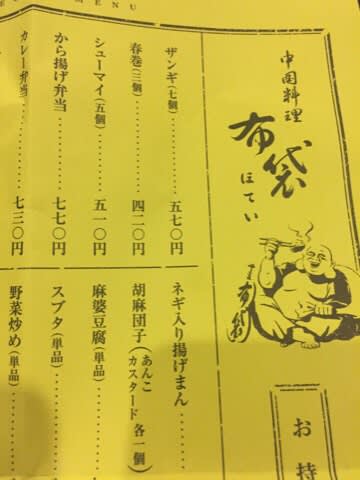 MENU
中国料理
布袋
ほてい
お持
ザンギ(七個)‥‥‥‥五七〇円
春巻(三個)‥‥‥‥四二〇円
シューマイ(五個)‥‥‥‥五一〇円
から揚げ弁当‥‥‥‥七七〇円
カレー弁当‥‥‥‥七三〇円
ネギ入り揚げまん‥‥‥‥
胡麻団子(あんこ カスタード 各一個)
麻婆豆腐(単品)‥‥‥‥
スブタ(単品)‥‥‥‥
野菜炒め(単品)‥‥‥‥